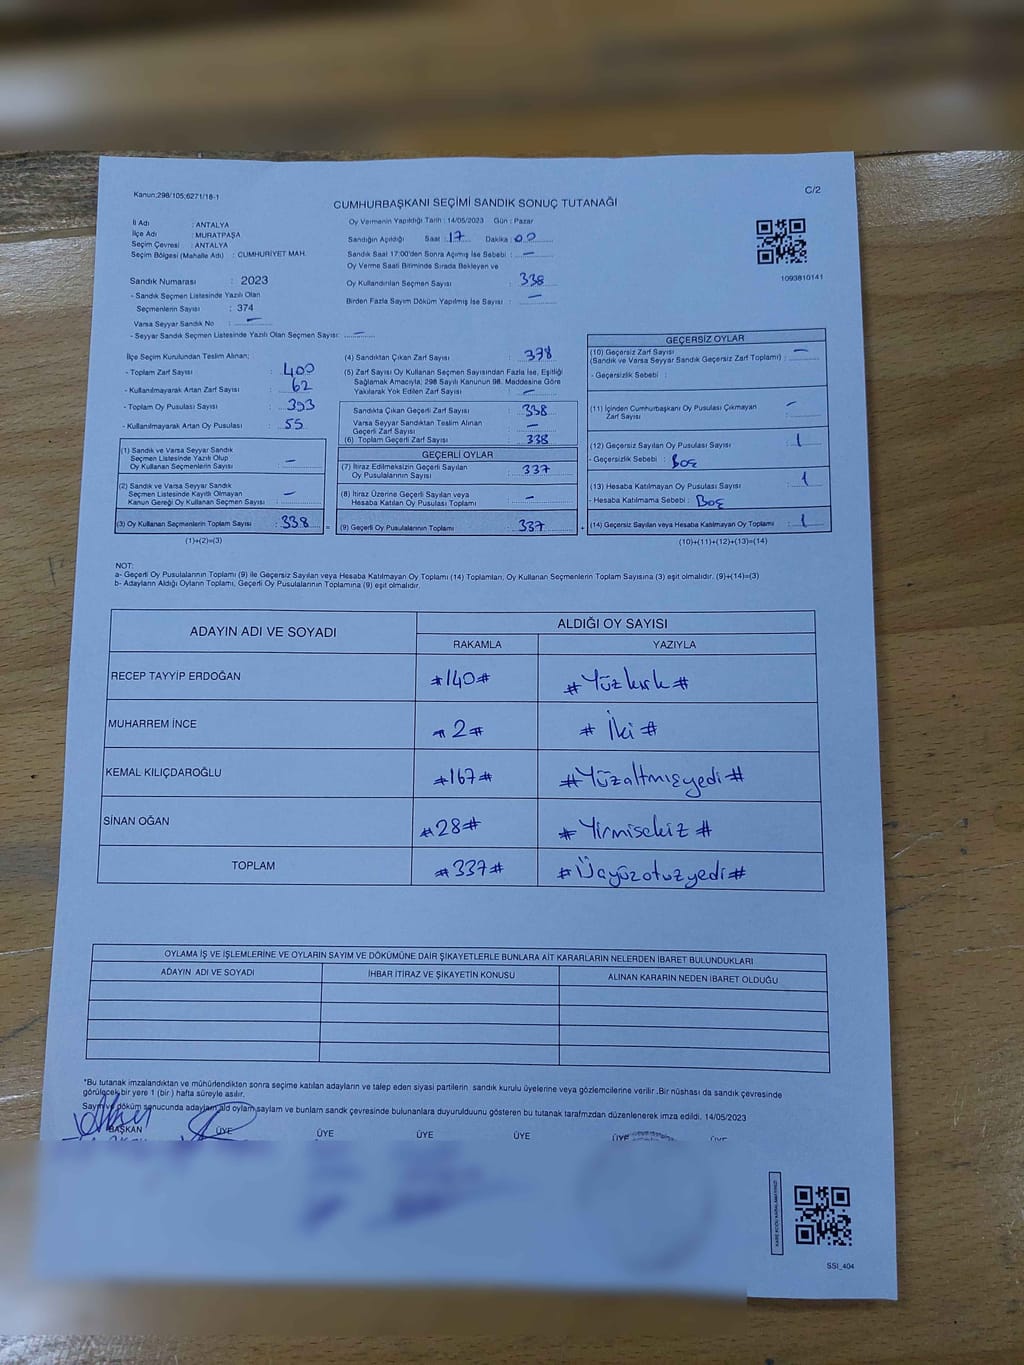 Kanun;298/105;6271/18-1
C/2
CUMHURBAŞKANI SEÇİMİ SANDIK SONUÇ TUTANAĞI
İl Adı : ANTALYA
İlçe Adı : MURATPAŞA
Seçim Çevresi : ANTALYA
Seçim Bölgesi (Mahalle Adı) : CUMHURİYET MAH.
Sandık Numarası : 2023
- Sandık Seçmen Listesinde Yazılı Olan
Seçmenlerin Sayısı : 374
Varsa Seyyar Sandık No : —
- Seyyar Sandık Seçmen Listesinde Yazılı Olan Seçmen Sayısı: —
Oy Vermenin Yapıldığı Tarih : 14/05/2023 Gün : Pazar
Sandığın Açıldığı Saat : 17 Dakika : 00
Sandık Saat 17:00'den Sonra Açımış İse Sebebi : —
Oy Verme Saati Bitiminde Sırada Bekleyen ve
Oy Kullandırılan Seçmen Sayısı : 338
Birden Fazla Sayım Döküm Yapılmış İse Sayısı : —
1093810141
İlçe Seçim Kurulundan Teslim Alınan;
- Toplam Zarf Sayısı : 400
- Kullanılmayarak Artan Zarf Sayısı : 62
- Toplam Oy Pusulası Sayısı : 393
- Kullanılmayarak Artan Oy Pusulası : 55
(1) Sandık ve Varsa Seyyar Sandık
Seçmen Listesinde Yazılı Olup
Oy Kullanan Seçmenlerin Sayısı : —
(2) Sandık ve Varsa Seyyar Sandık
Seçmen Listesinde Kayıtlı Olmayan
Kanun Gereği Oy Kullanan Seçmen Sayısı : —
(3) Oy Kullanan Seçmenlerin Toplam Sayısı : 338 =
(1)+(2)=(3)
(4) Sandıktan Çıkan Zarf Sayısı : 338
(5) Zarf Sayısı Oy Kullanan Seçmen Sayısından Fazla İse, Eşitliği
Sağlamak Amacıyla; 298 Sayılı Kanunun 98. Maddesine Göre
Yakılarak Yok Edilen Zarf Sayısı : —
Sandıkta Çıkan Geçerli Zarf Sayısı : 338
Varsa Seyyar Sandıktan Teslim Alınan
Geçerli Zarf Sayısı : —
(6) Toplam Geçerli Zarf Sayısı : 338
GEÇERLİ OYLAR
(7) İtiraz Edilmeksizin Geçerli Sayılan
Oy Pusulalarının Sayısı : 337
(8) İtiraz Üzerine Geçerli Sayılan veya
Hesaba Katılan Oy Pusulası Toplamı : —
(9) Geçerli Oy Pusulalarının Toplamı : 337 +
GEÇERSİZ OYLAR
(10) Geçersiz Zarf Sayısı
(Sandık ve Varsa Seyyar Sandık Geçersiz Zarf Toplamı) : —
- Geçersizlik Sebebi :
(11) İçinden Cumhurbaşkanı Oy Pusulası Çıkmayan
Zarf Sayısı : —
(12) Geçersiz Sayılan Oy Pusulası Sayısı : 1
- Geçersizlik Sebebi : Boş
(13) Hesaba Katılmayan Oy Pusulası Sayısı : 1
- Hesaba Katılmama Sebebi : Boş
(14) Geçersiz Sayılan veya Hesaba Katılmayan Oy Toplamı : 1
(10)+(11)+(12)+(13)=(14)
NOT:
a- Geçerli Oy Pusulalarının Toplamı (9) ile Geçersiz Sayılan veya Hesaba Katılmayan Oy Toplamı (14) Toplamları, Oy Kullanan Seçmenlerin Toplam Sayısına (3) eşit olmalıdır. (9)+(14)=(3)
b- Adayların Aldığı Oyların Toplamı, Geçerli Oy Pusulalarının Toplamına (9) eşit olmalıdır.
ADAYIN ADI VE SOYADI ALDIĞI OY SAYISI
RAKAMLA YAZIYLA
RECEP TAYYİP ERDOĞAN #140# #Yüzkırk#
MUHARREM İNCE #2# #İki#
KEMAL KILIÇDAROĞLU #167# #Yüzaltmışyedi#
SİNAN OĞAN #28# #Yirmisekiz#
TOPLAM #337# #Üçyüzotuzyedi#
OYLAMA İŞ VE İŞLEMLERİNE VE OYLARIN SAYIM VE DÖKÜMÜNE DAİR ŞİKAYETLERLE BUNLARA AİT KARARLARIN NELERDEN İBARET BULUNDUKLARI
ADAYIN ADI VE SOYADI İHBAR İTİRAZ VE ŞİKAYETİN KONUSU ALINAN KARARIN NEDEN İBARET OLDUĞU
*Bu tutanak imzalandıktan ve mühürlendikten sonra seçime katılan adayların ve talep eden siyasi partilerin sandık kurulu üyelerine veya gözlemcilerine verilir .Bir nüshası da sandık çevresinde
görülecek bir yere 1 (bir ) hafta süreyle asılır.
Sayım ve döküm sonucunda adayların ald oyların saylam ve bunların sandk çevresinde bulunanlara duyurulduunu gösteren bu tutanak tarafmzdan düzenlenerek imza edildi. 14/05/2023
BAŞKAN ÜYE ÜYE ÜYE ÜYE ÜYE ÜYE
SSI_404